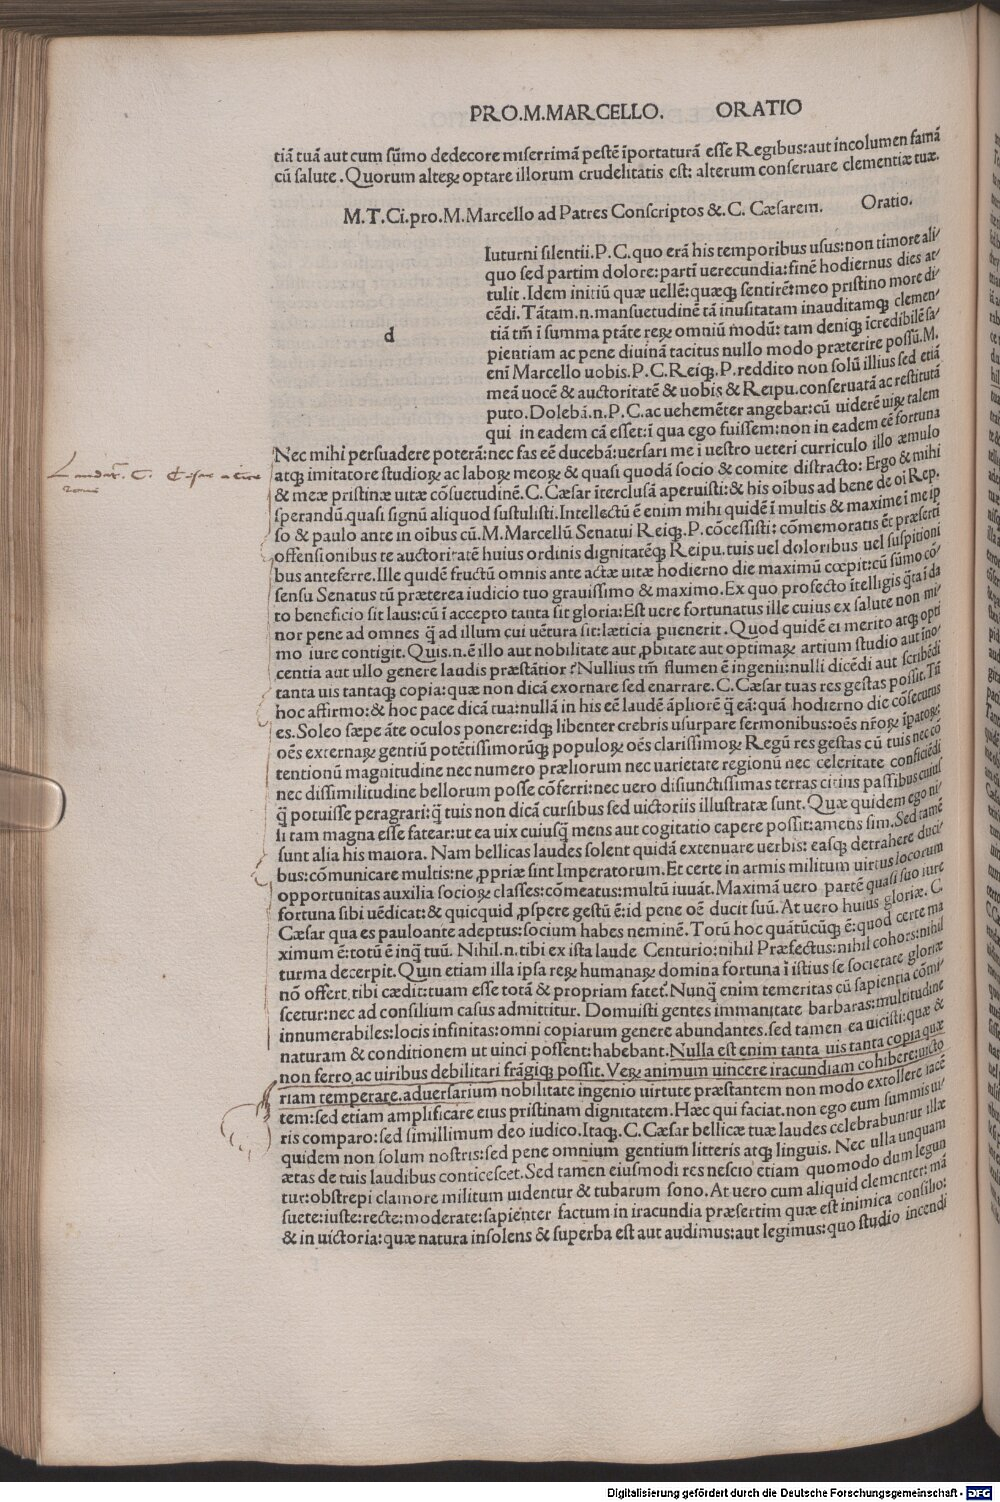 PRO.M.MARCELLO. ORATIO
tiā tuā aut cum sūmo dedecore miserrimā pestē īportaturā esse Regibus:aut incolumen famā
cū salute.Quorum alteꝝ optare illorum crudelitatis est: alterum conseruare clementiæ tuæ.
M.T.Ci.pro.M.Marcello ad Patres Conscriptos &.C.Cæsarem. Oratio.
d
Iuturni silentii.P.C.quo erā his temporibus usus:non timore ali/
quo sed partim dolore:partī uerecundia:finē hodiernus dies at/
tulit.Idem initiū quæ uellē:quæqꝫ sentirē:meo pristino more di/
cēdi.Tātam.n.mansuetudinē tā inusitatam inauditamqꝫ clemen/
tiā tm̄ ī summa ptāte reꝝ omniū modū: tam deniqꝫ īcredibilē sa/
pientiam ac pene diuinā tacitus nullo modo præterire possū.M.
enī Marcello uobis.P.C.Reiqꝫ.P.reddito non solū illius sed etiā
meā uocē & auctoritatē & uobis & Reipu.conseruatā ac restitutā
puto.Dolebā.n.P.C.ac uehemēter angebar:cū uiderē uiꝝ talem
qui in eadem cā esset:ī qua ego fuissem:non in eadem eē fortuna
Nec mihi persuadere poterā:nec fas eē ducebā:uersari me ī uestro ueteri curriculo illo æmulo
atqꝫ imitatore studioꝝ ac laboꝝ meoꝝ & quasi quodā socio & comite distracto: Ergo & mihi
& meæ pristinæ uitæ cōsuetudinē.C.Cæsar īterclusā aperuisti:& his oībus ad bene de oī Rep.
sperandū.quasi signū aliquod sustulisti.Intellectū ē enim mihi quidē ī multis & maxime ī me ip
so & paulo ante in oībus cū.M.Marcellū Senatui Reiqꝫ.P.cōcessisti: cōmemoratis ēt præserti
offensionibus te auctoritatē huius ordinis dignitatēqꝫ Reipu.tuis uel doloribus uel suspitioni
bus anteferre.Ille quidē fructū omnis ante actæ uitæ hodierno die maximū cœpit:cū sūmo cō/
sensu Senatus tū præterea iudicio tuo grauissimo & maximo.Ex quo profecto ītelligis q̄ta ī da
to beneficio sit laus:cū ī accepto tanta sit gloria:Est uere fortunatus ille cuius ex salute non mi/
nor pene ad omnes q̄ ad illum cui uētura sit:læticia puenerit.Quod quidē ei merito atqꝫ opti
mo iure contigit.Quis.n.ē illo aut nobilitate aut ꝓbitate aut optimaꝝ artium studio aut ino/
centia aut ullo genere laudis præstātior?Nullius tm̄ flumen ē ingenii:nulli dicēdi aut scribēdi
tanta uis tantaqꝫ copia:quæ non dicā exornare sed enarrare.C.Cæsar tuas res gestas possit.Tū
hoc affirmo:& hoc pace dicā tua:nullā in his eē laudē āpliorē q̄ eā:quā hodierno die cōsecutus
es.Soleo sæpe āte oculos ponere:idqꝫ libenter crebris usurpare sermonibus:oēs nr̄oꝝ īpatoꝝ:
oēs externaꝝ gentiū potētissimorūqꝫ populoꝝ oēs clarissimoꝝ Regū res gestas cū tuis nec cō
tentionū magnitudine nec numero præliorum nec uarietate regionū nec celeritate conficiēdi
nec dissimilitudine bellorum posse cōferri:nec uero disiunctissimas terras citius passibus cuius
q̄ potuisse peragrari:q̄ tuis non dicā cursibus sed uictoriis illustratæ sunt.Quæ quidem ego ni/
si tam magna esse fatear:ut ea uix cuiusq̄ mens aut cogitatio capere possit:amens sim.Sed tamē
sunt alia his maiora. Nam bellicas laudes solent quidā extenuare uerbis: easqꝫ detrahere duci/
bus:cōmunicare multis:ne ꝓpriæ sint Imperatorum.Et certe in armis militum uirtus locorum
opportunitas auxilia socioꝝ classes:cōmeatus:multū iuuāt.Maximā uero partē quasi suo iure
fortuna sibi uēdicat:& quicquid ꝓspere gestū ē:id pene oē ducit suū.At uero huius gloriæ.C.
Cæsar qua es pauloante adeptus:socium habes neminē.Totū hoc quātūcūqꝫ ē:quod certe ma
ximum ē:totū ē inq̄ tuū. Nihil.n.tibi ex ista laude Centurio:nihil Præfectus:nihil cohors:nihil
turma decerpit.Quin etiam illa ipsa reꝝ humanaꝝ domina fortuna ī istius se societate gloriæ
nō offert.tibi cædit:tuam esse totā & propriam fatet̄.Nunq̄ enim temeritas cū sapientia cōmi/
scetur:nec ad consilium casus admittitur. Domuisti gentes immanitate barbaras:multitudine
innumerabiles:locis infinitas:omni copiarum genere abundantes.sed tamen ea uicisti:quæ &
naturam & conditionem ut uinci possent:habebant.Nulla est enim tanta uis tanta copia quæ
non ferro ac uiribus debilitari frāgiqꝫ possit.Veꝝ animum uincere iracundiam cohibere:uicto
riam temperare.aduersarium nobilitate ingenio uirtute præstantem non modo extollere iacē
tem:sed etiam amplificare eius pristinam dignitatem.Hæc qui faciat.non ego eum summis ui/
ris comparo:sed simillimum deo iudico.Itaqꝫ.C.Cæsar bellicæ tuæ laudes celebrabuntur illæ
quidem non solum nostris:sed pene omnium gentium litteris atqꝫ linguis. Nec ulla unquam
ætas de tuis laudibus conticescet.Sed tamen eiusmodi res nescio etiam quomodo dum legun
tur:obstrepi clamore militum uidentur & tubarum sono.At uero cum aliquid clementer: mā
suete:iuste:recte:moderate:sapienter factum in iracundia præsertim quæ est inimica consilio:
& in uictoria:quæ natura insolens & superba est aut audimus:aut legimus:quo studio incendi
Digitalisierung gefördert durch die Deutsche Forschungsgemeinschaft - DFG